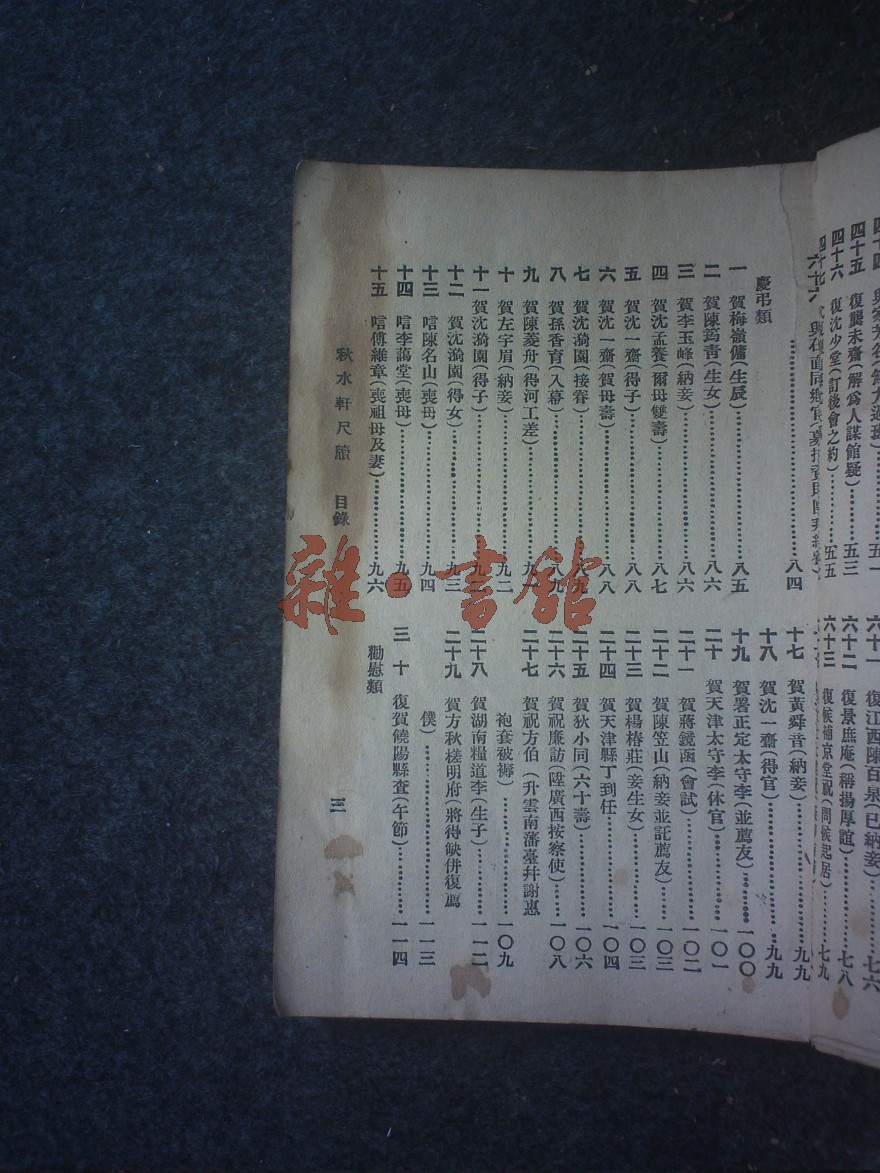 復龔未齋(解爲人謀館疑)…………五三
四十六 復沈少堂(訂後會之約)…………五五
六十一 復江西陳百泉(已納妾)…………七六
六十二 復景庶庵(稱揚厚誼)…………七八
六十三 復候補京堂祝(問候起居)…………七九
…………八四
慶弔類
一 賀梅嶺傭(生辰)…………八五
二 賀陳筠青(生女)…………八六
三 賀李玉峰(納妾)…………八六
四 賀沈孟養(爾母雙壽)…………八七
五 賀沈一齋(得子)…………八八
六 賀沈一齋(賀母壽)…………八八
七 賀沈漪園(接眷)…………八九
八 賀孫香育(入幕)…………八九
九 賀陳菱舟(得河工差)…………九一
十 賀左字眉(納妾)…………九二
十一 賀沈漪園(得子)…………九二
十二 賀沈漪園(得女)…………九三
十三 唁陳名山(喪母)…………九四
十四 唁李藹堂(喪母)…………九五
十五 唁傅維章(喪祖母及妻)…………九六
十七 賀黃舜音(納妾)…………九九
十八 賀沈一齋(得官)…………九九
十九 賀署正定太守李(並薦友)…………一〇〇
二十 賀天津太守李(休官)…………一〇一
二十一 賀蔣鏡函(會試)…………一〇二
二十二 賀陳笠山(納妾並託薦友)…………一〇三
二十三 賀楊椿莊(妾生女)…………一〇三
二十四 賀天津縣丁到任…………一〇四
二十五 賀狄小同(六十壽)…………一〇六
二十六 賀祝廉訪(陞廣西按察使)…………一〇八
二十七 賀祝方伯(升雲南藩臺幷謝惠
袍套被褥)…………一〇九
二十八 賀湖南糧道李(生子)…………一一二
二十九 賀方秋槎明府(將得缺併復薦
僕)…………一一三
三十 復賀饒陽縣查(午節)…………一一四
勸慰類
秋水軒尺牘 目錄
三
雜·書館